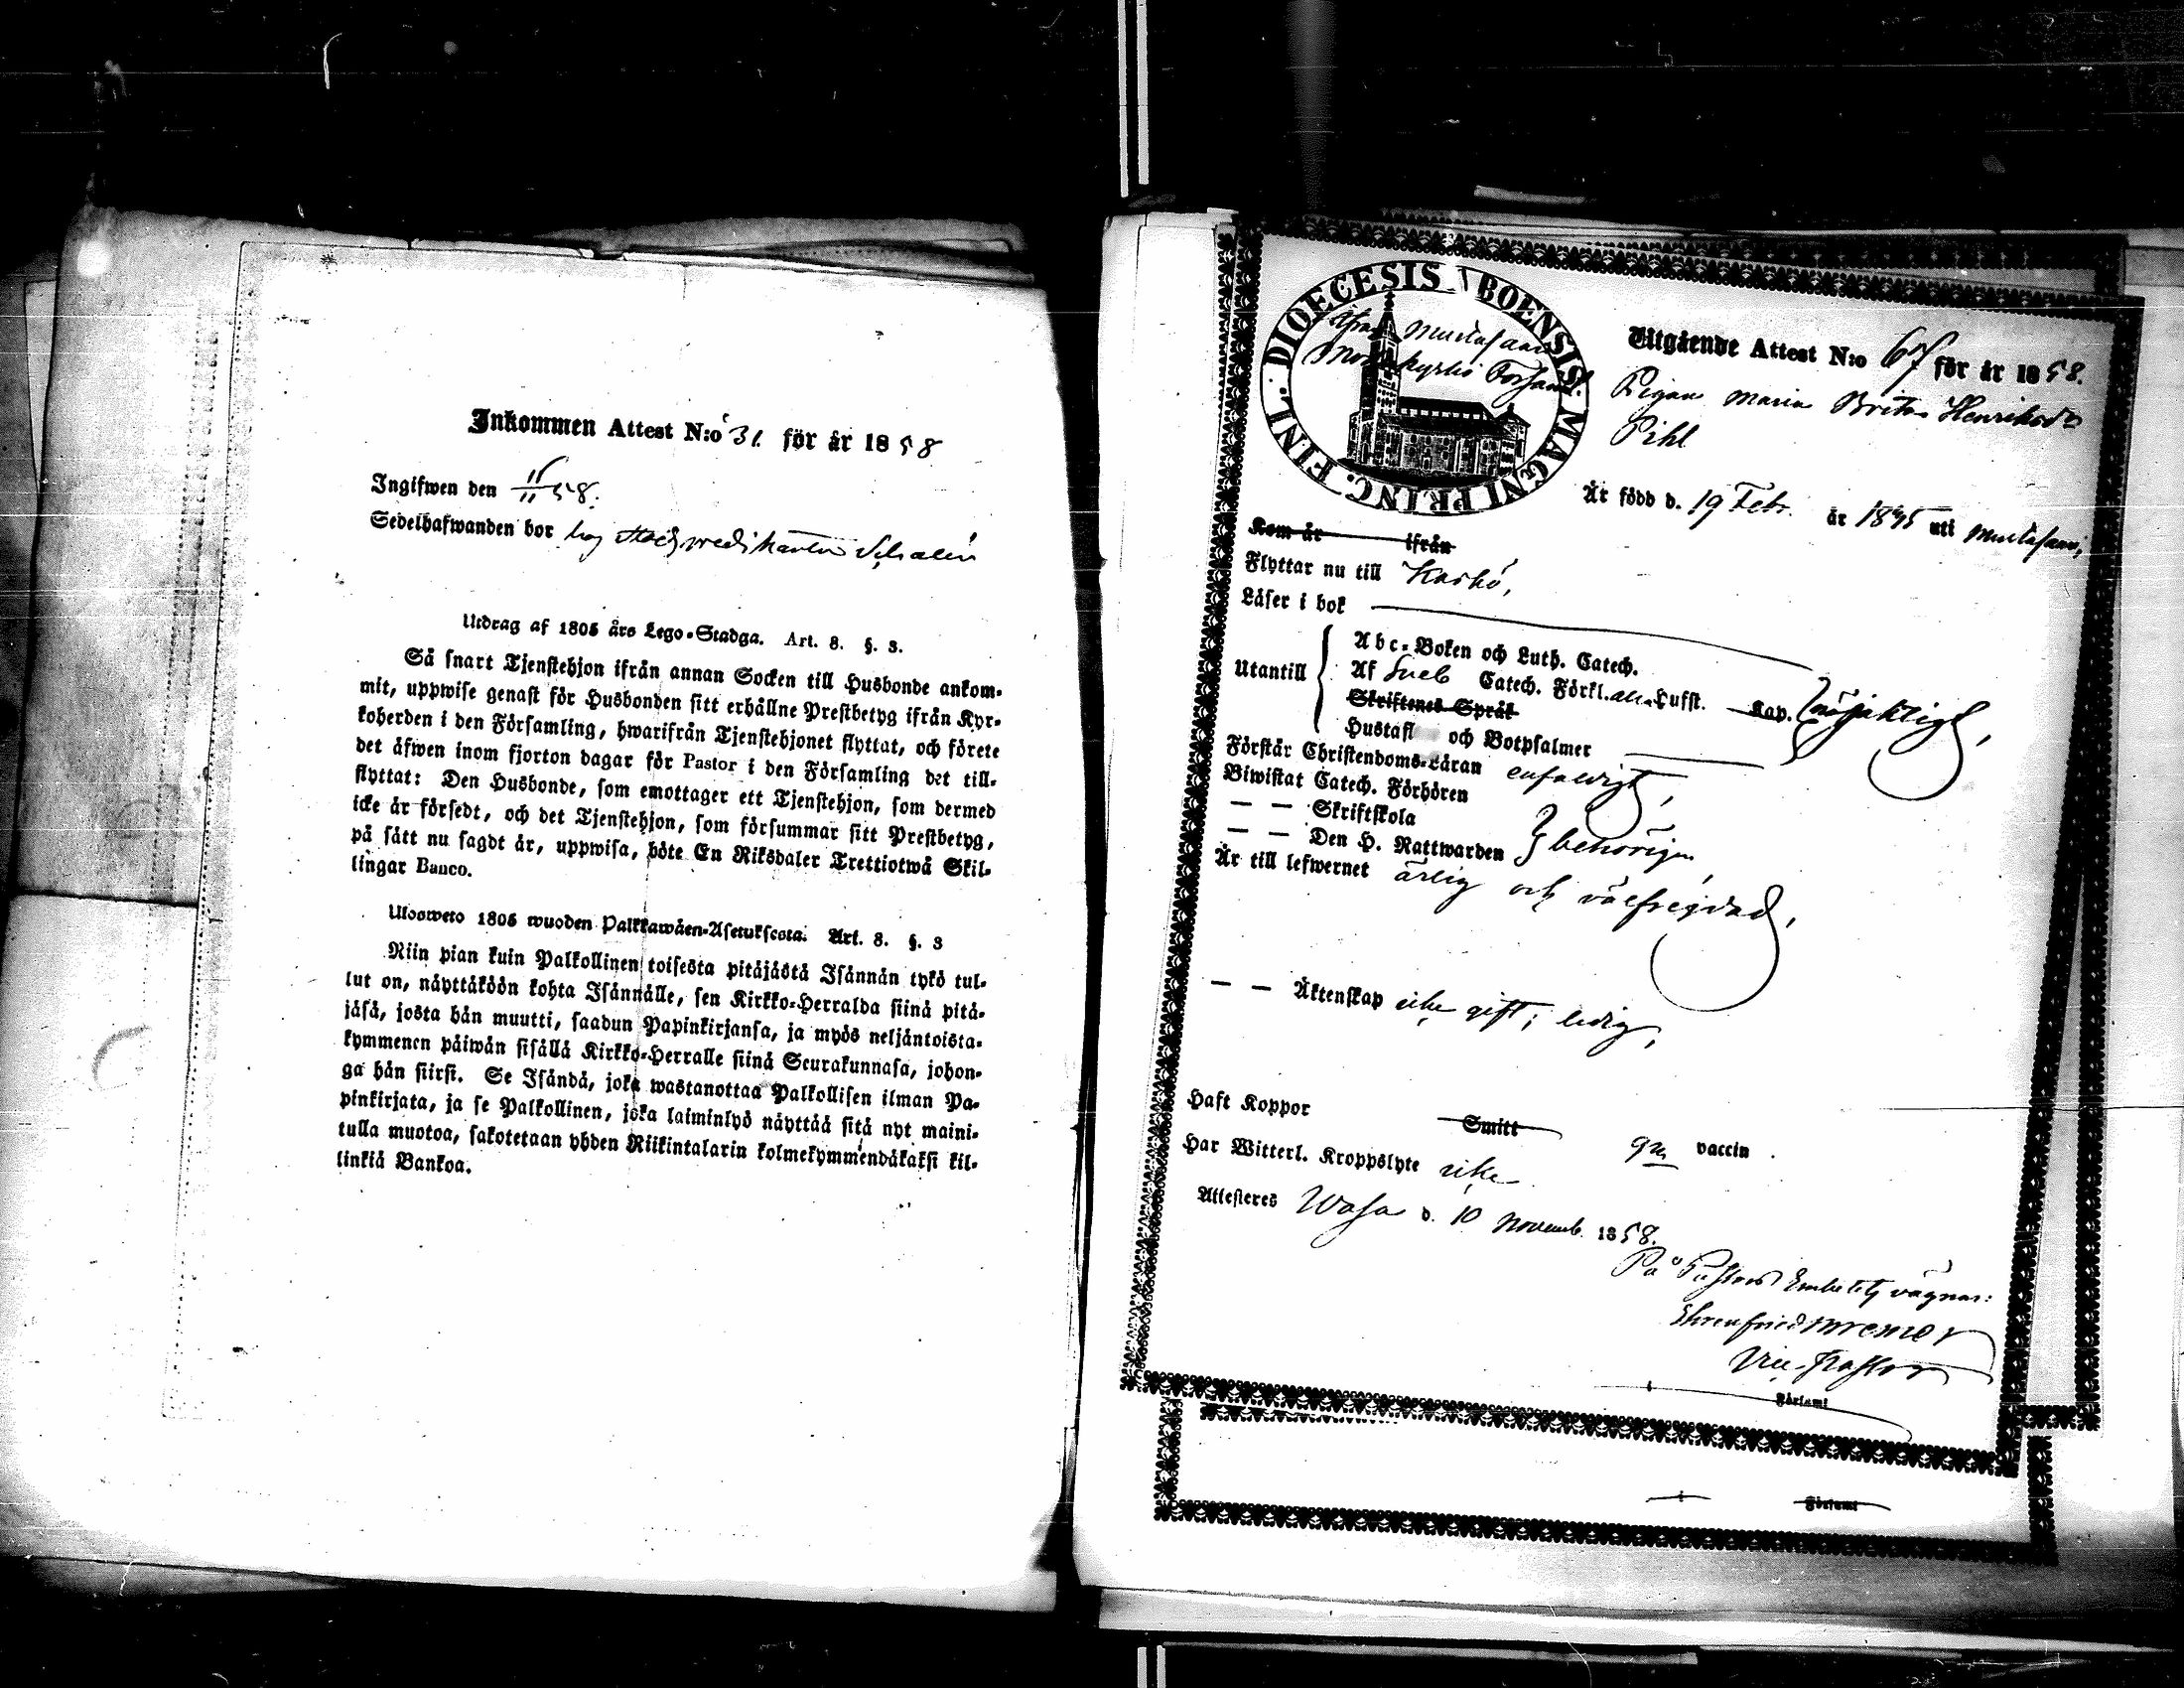 Inkommen Attest N:o 31. för år 1858
Ingifwen den 11/11 58.
Sedelhafwanden bor hos Stadspredikanten
Utdrag af 1805 års Lego-Stadga. Art. 8. §. 3.
Så snart Tjenstehjon ifrån annan Socken till Husbonde ankom-
mit, uppwise genast för Husbonden sitt erhållne Prestbetyg ifrån Kyr-
koherden i den Församling, hwarifrån Tjenstehjonet flyttat, och förete
det åfwen inom fjorton dagar för Pastor i den Församling det till-
flyttat: Den Husbonde, som emottager ett Tjenstehjon, som dermed
icke är försedt, och det Tjenstehjon, som försummar sitt Prestbetyg,
på sätt nu sagdt är, uppwisa, böte En Riksdaler Trettiotwå Skil-
lingar Banco.
Ulosweto 1805 wuoden Palkkawäen-Asetuksesta. Art. 8. §. 3
Niin pian kuin Palkollinen toisesta pitäjästä Isännän tykö tul-
lut on, näyttäköön kohta Isännälle, sen Kirkko-Herralda siinä pitä-
jäsä, josta hän muutti, saadun Papinkirjansa, ja myös neljäntoista-
kymmenen päiwän sisällä Kirkko-Herralle siinä Seurakunnasa, johon-
ga hän siirsi. Se Isändä, joka wastanottaa Palkollisen ilman Pa-
pinkirjata, ja se Palkollinen, joka laiminlyö näyttää sitä nyt maini-
tulla muotoa, sakotetaan yhden Riikintalarin kolmekymmendäkaksi kil-
linkiä Bankoa.
DIOECESIS ABOENSIS MAGNI PRINC. FINL.
ifrån Mustasaari
Utgående Attest N:o 67 för år 1858.
Pigan Maria Brita Henriksdr
Pihl
Är född d. 19 Febr. år 1835 uti Mustasaari,
Kom år ifrån
Flyttar nu till Kaskö,
Läser i bok
Utantill
Abc-Boken och Luth. Catech.
Af Sveb Catech. Förkl. Hufst. Kap. försvarligt,
Skriftenes Språk
Hustafl och Botpsalmer
Förstår Christendoms-Läran enfaldigt,
Biwistat Catech. Förhören
— — Skriftskola
— — Den H. Nattwarden behörigen,
Är till lefwernet ärlig och välfrejdad,
— — Äktenskap icke gift; ledig,
Haft Koppor Smitt gm vaccin.
Har Witterl. Kroppslyte icke
Attesteras Wasa d. 10 Novemb. 1858.
På Pastors Embetets vägnar:
Ehrenfried
Vice-Pastor
i Församl
i Församl